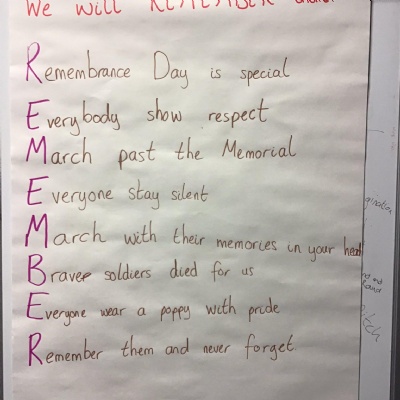 We will REMEMBER
Remembrance Day is special
Everybody show respect
March past the Memorial
Everyone stay silent
March with their memories in your head
Braver soldiers died for us
Everyone wear a poppy with pride
Remember them and never forget